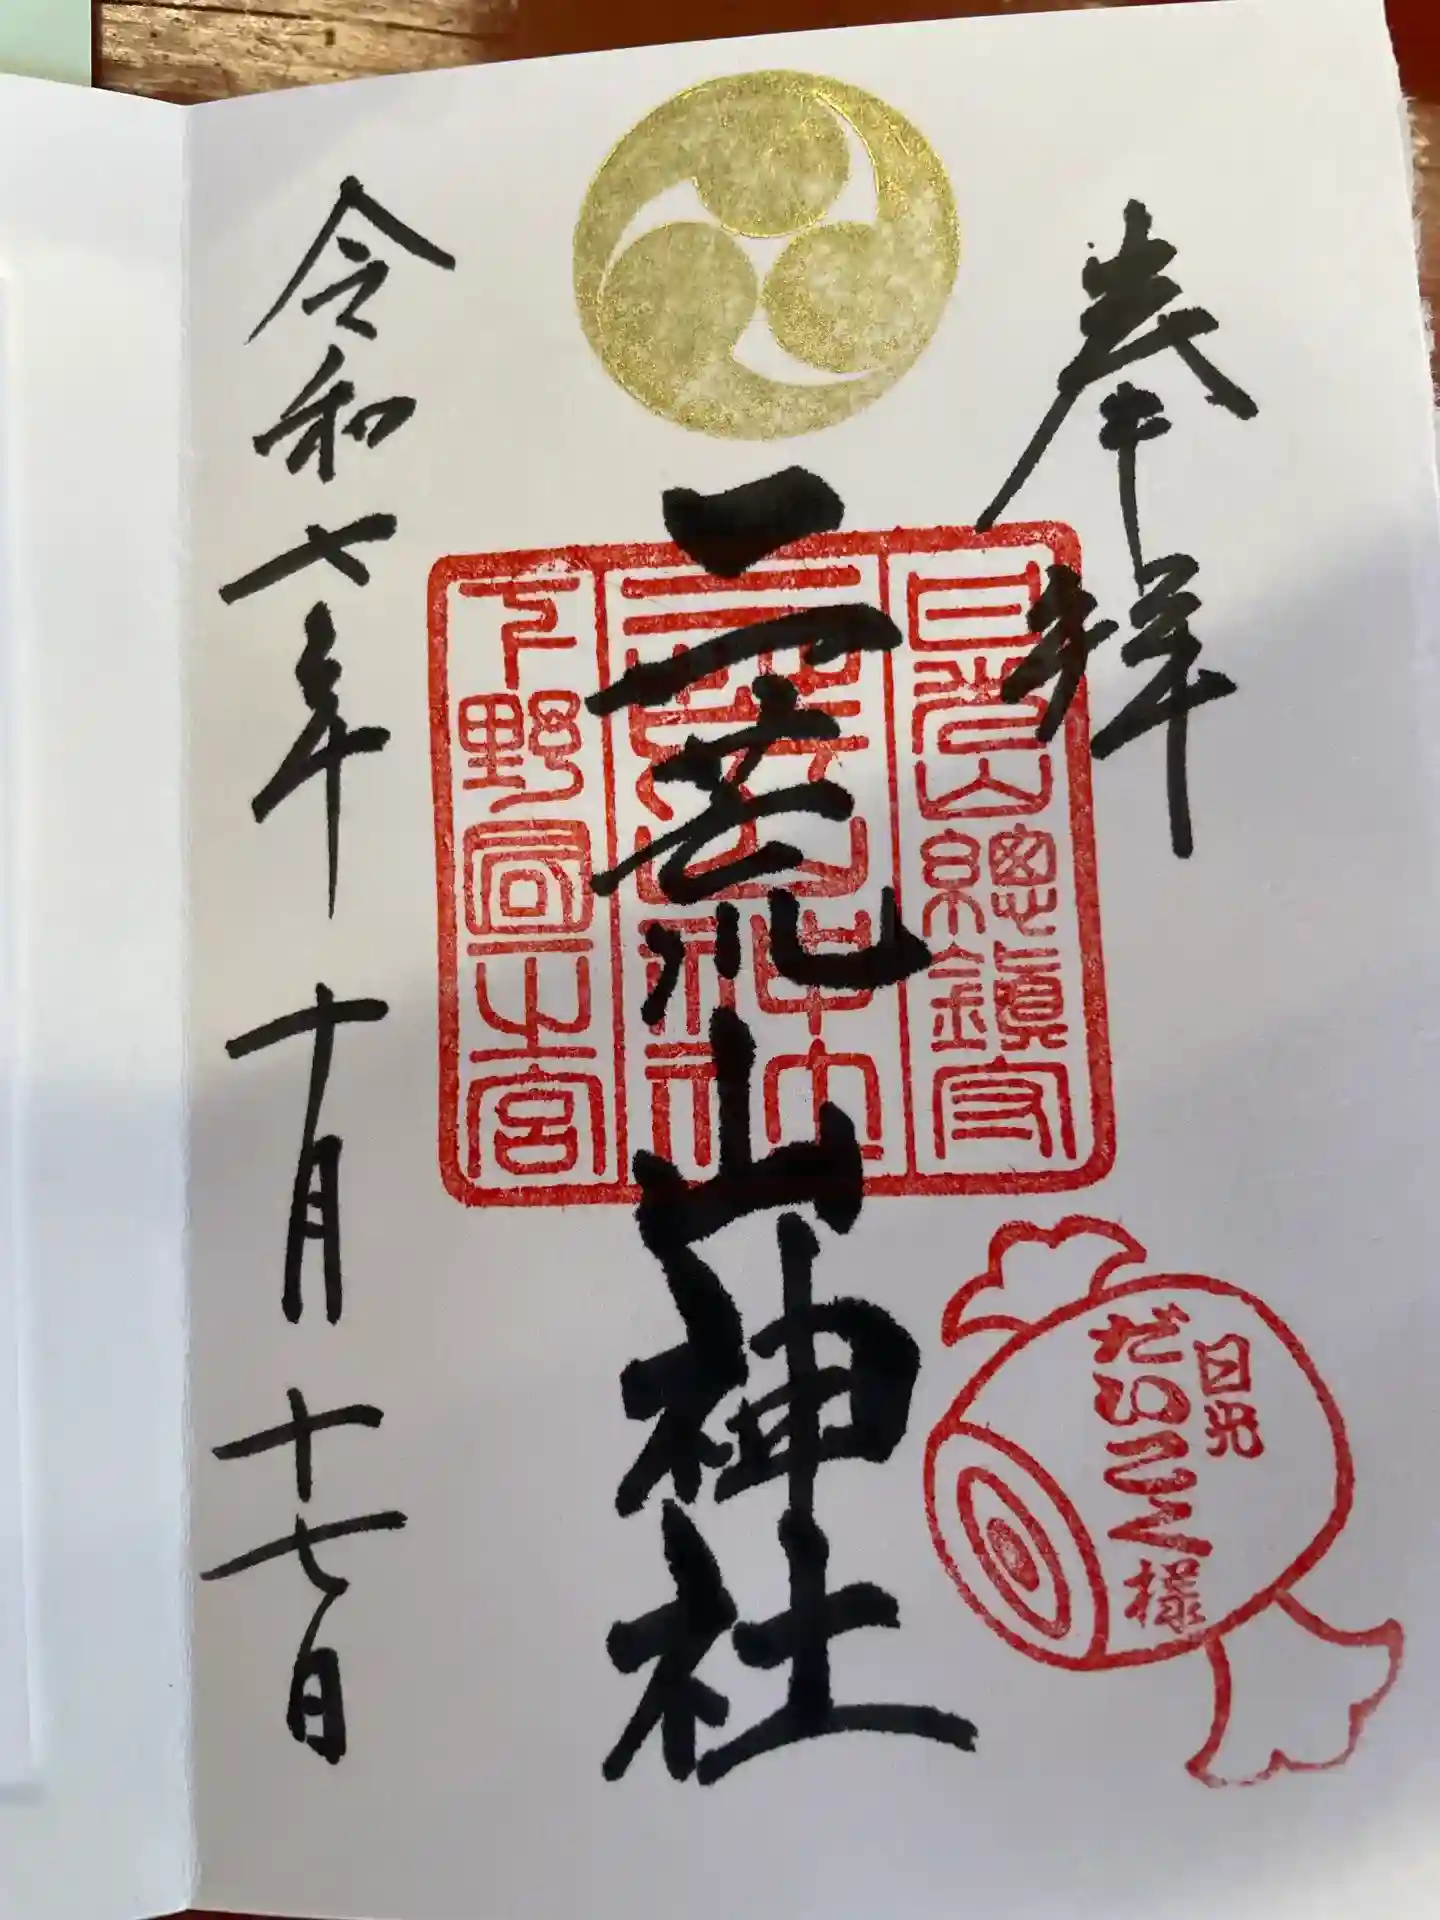 奉拝
日光山總鎮守
二荒山神社
下野國一之宮
二荒山神社
日光
だいこく様
令和七年 十月 十七日